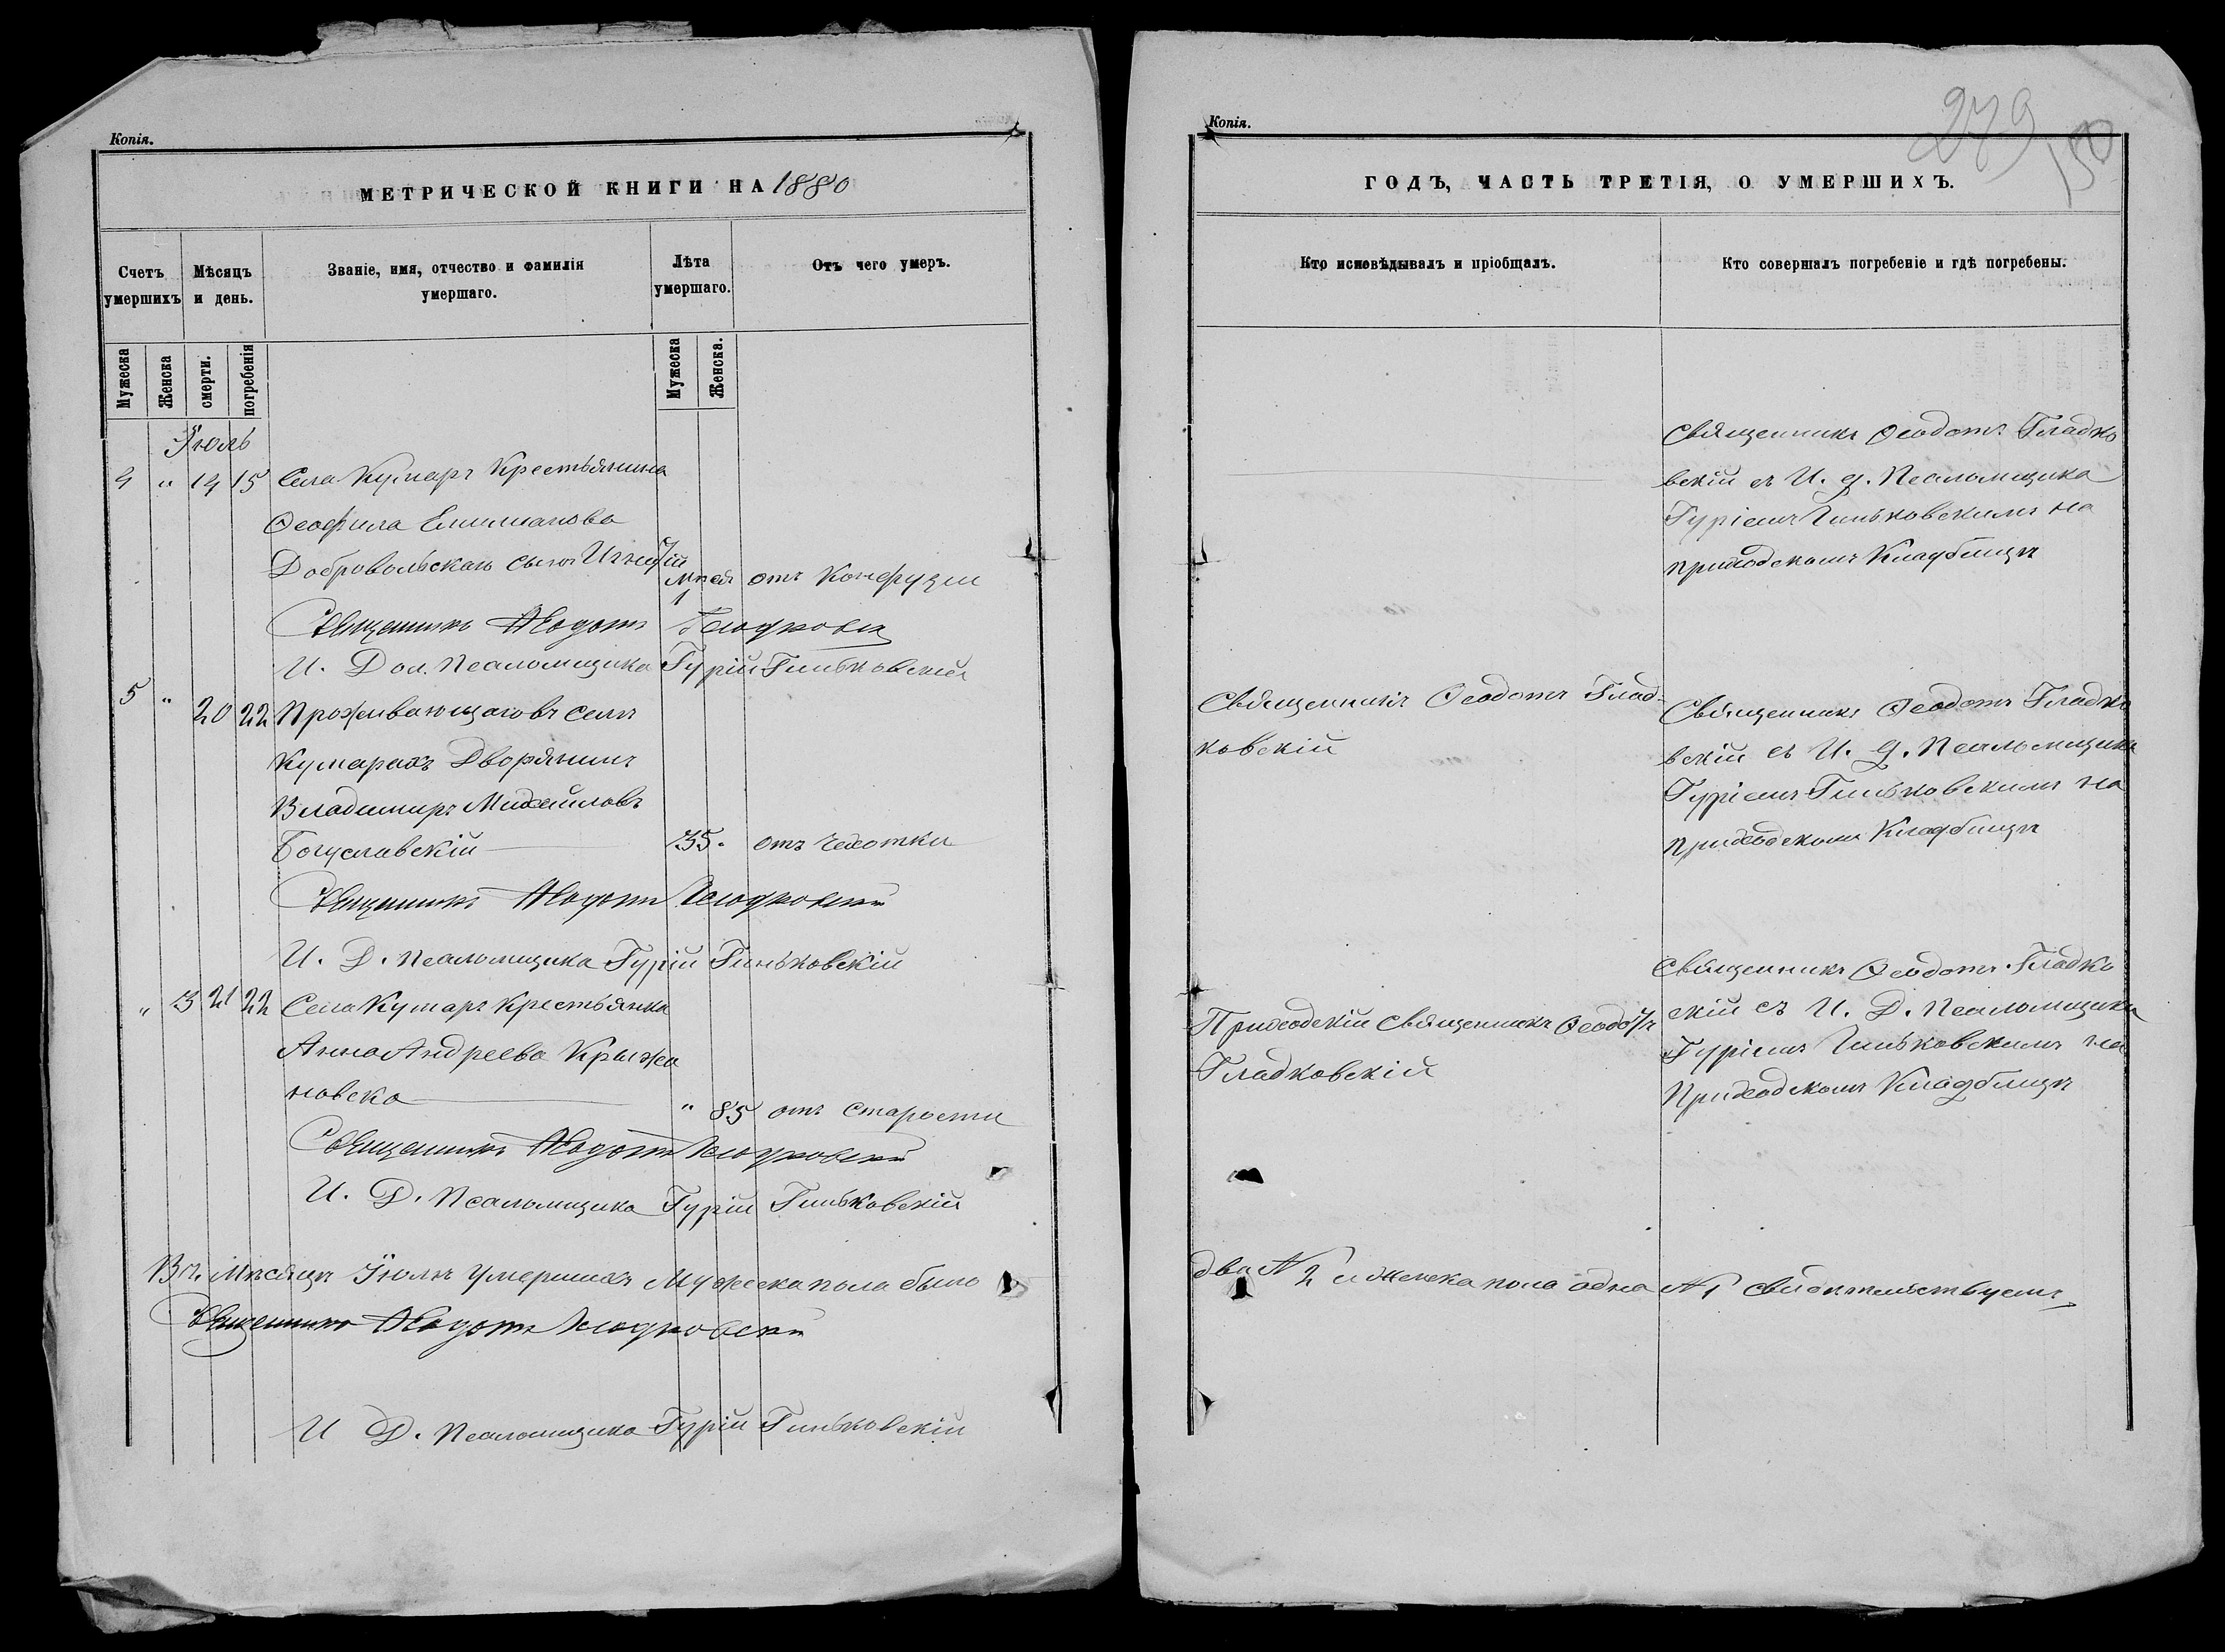 Копія.
МЕТРИЧЕСКОЙ КНИГИ НА 1880
Счетъ умершихъ
Мѣсяцъ и день.
Званіе, имя, отчество и фамилія умершаго.
Лѣта умершаго.
Отъ чего умеръ.
Мужеска
Женска
смерти.
погребенія
Мужеска
Женска.
Іюль
4 " 14 15 Села Кумаръ Крестьянина
Ѳеофила Емилианова
Добровольскаго сынъ Игнатій
1 мѣся отъ Конфузіи
Священникъ Ѳеодотъ Гладковскій
И. Дол. Псаломщика Гурій Гиньковскій
5 " 20 22 Проживающаго въ селѣ
Кумарахъ Дворянинъ
Владимиръ Михайловъ
Богуславскій 35. отъ чахотки
Священникъ Ѳеодотъ Гладковскій
И. Д. Псаломщика Гурій Гиньковскій
" 3 21 22 Села Кумаръ Крестьянка
Анна Андреева Крыжа
новска " 85 отъ старости
Священникъ Ѳеодотъ Гладковскій
И. Д. Псаломщика Гурій Гиньковскій
Въ Мѣсяцѣ Іюлѣ умершихъ Мужеска пола было
Священникъ Ѳеодотъ Гладковскій
И Д. Псаломщика Гурій Гиньковскій
Копія.
279
150
ГОДЪ, ЧАСТЬ ТРЕТІЯ, О УМЕРШИХЪ.
Кто исповѣдывалъ и пріобщалъ.
Кто совершалъ погребеніе и гдѣ погребены.
Священникъ Ѳеодотъ Гладко
вскій съ И. д. Псаломщика
Гуріемъ Гиньковскимъ на
приходскомъ Кладбищѣ
Священникъ Ѳеодотъ Глад-
ковскій
Священникъ Ѳеодотъ Гладко
вскій съ И. д. Псаломщика
Гуріемъ Гиньковскимъ на
приходскомъ Кладбищѣ
Приходскій Священникъ Ѳеодотъ
Гладковскій
Священникъ Ѳеодотъ Гладко
скій съ И. Д. Псаломщика
Гуріемъ Гиньковскимъ на
Приходскомъ Кладбищѣ
два № 2 и женска пола одна № 1 свидѣтельствуемъ